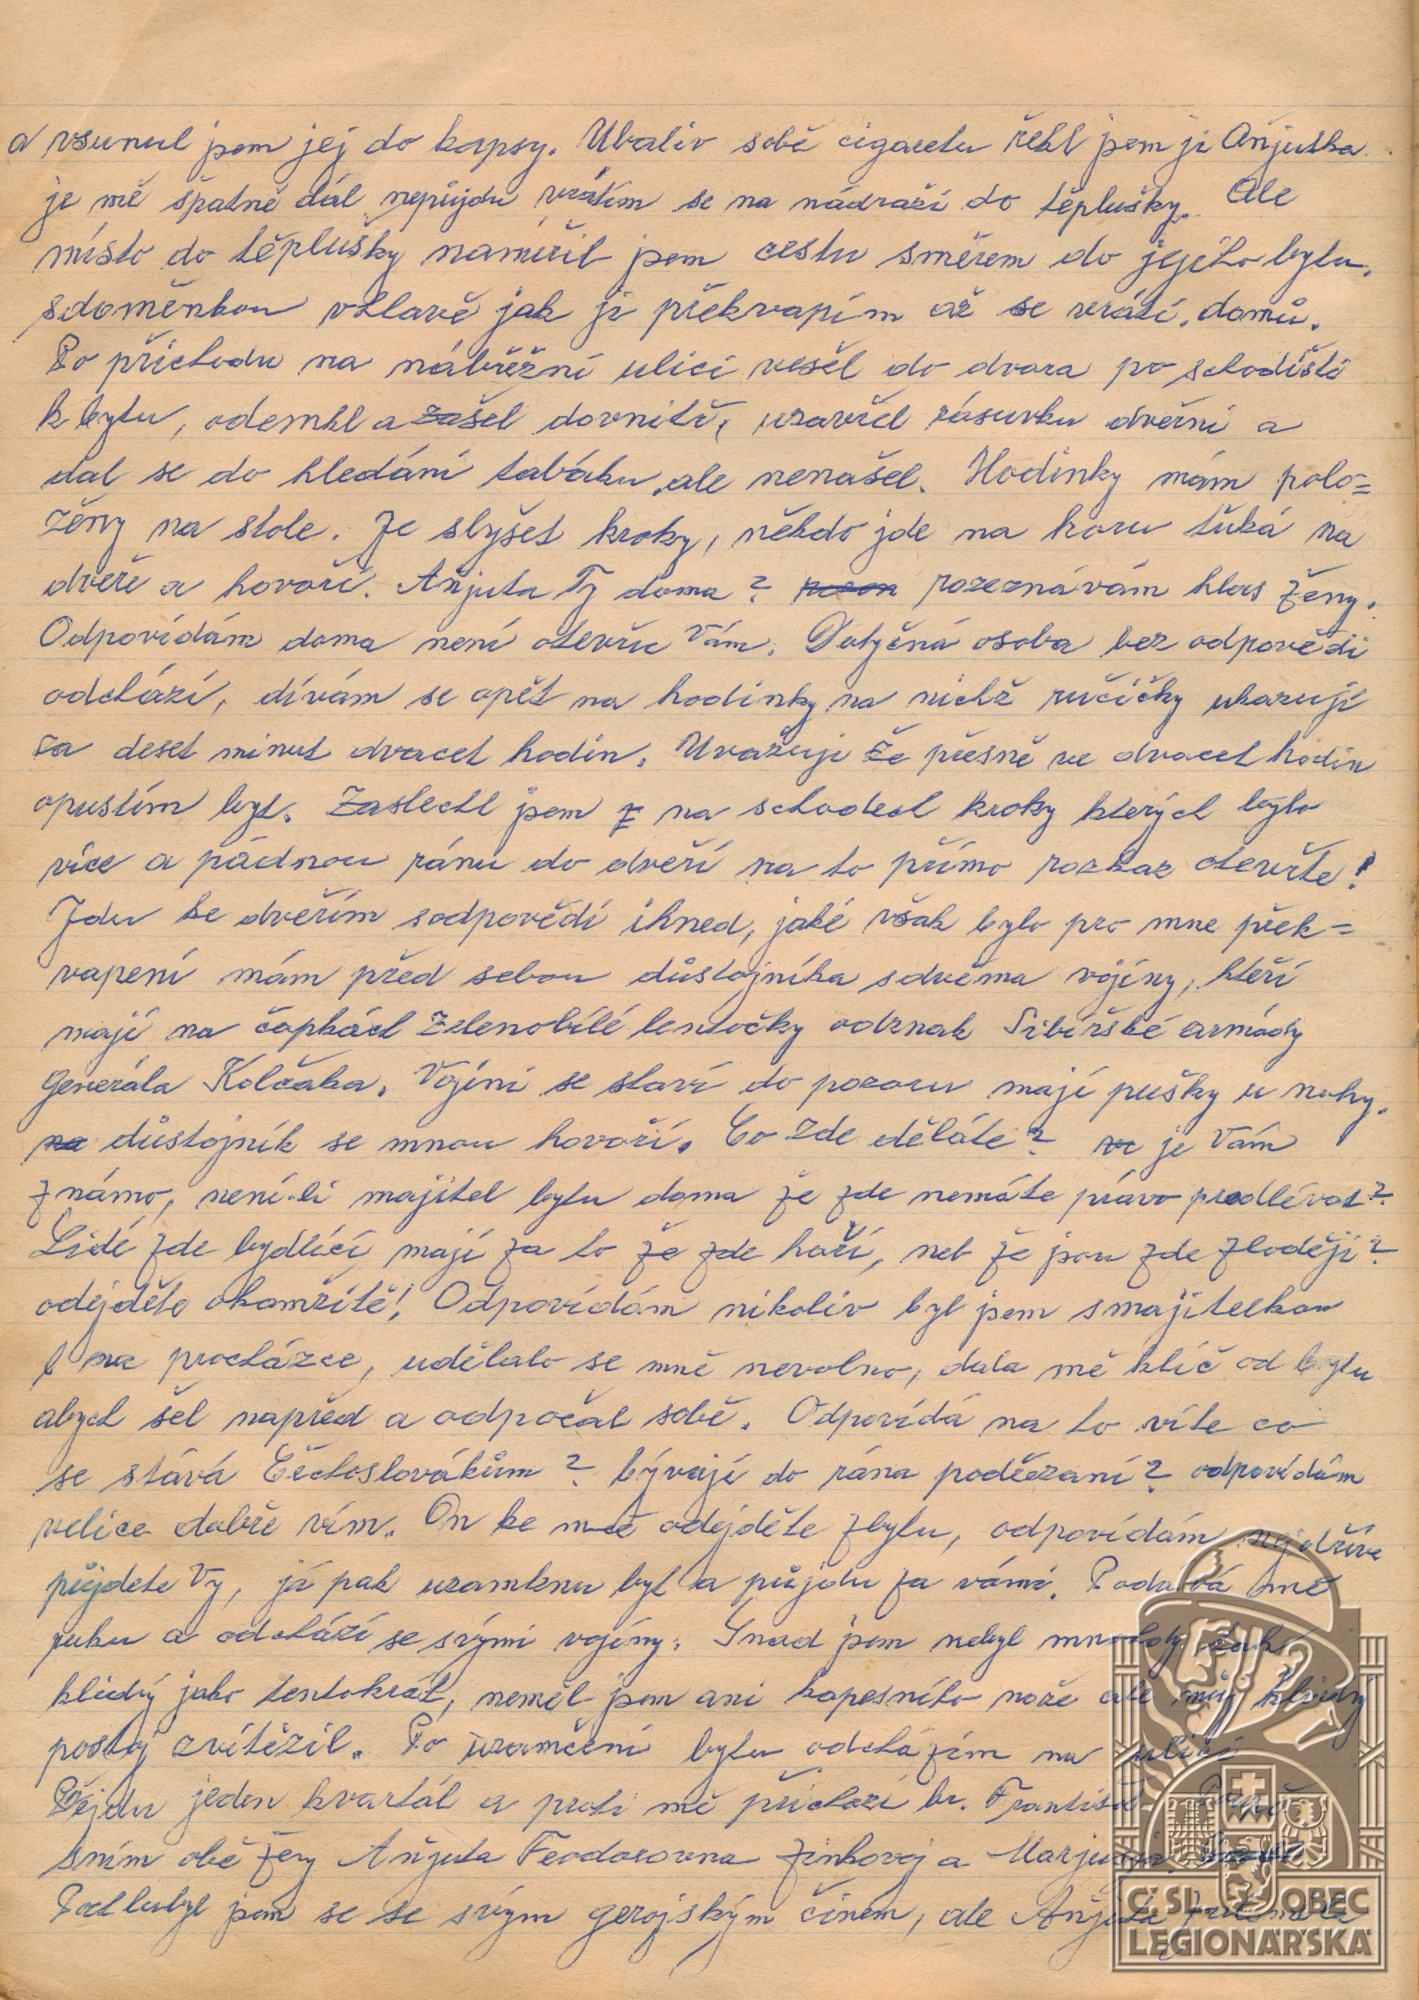 a vsunul jsem jej do kapsy. Ubaliv sobě cigaretu řekl jsem ji Aňjutka
je mě špatně dál nepůjdu vrátím se na nádraží do těplušky. Ale
místo do těplušky namířil jsem cestu směrem do jejího bytu.
sdoměnkou vhlavě jak ji překvapím až se vrátí. domů.
Po příchodu na nábřěžní ulici vešel do dvora po schodišti
k bytu, odemkl a zašel dovnitř, uzavřel zásuvku dveřní a
dal se do hledání tabáku, ale nenašel. Hodinky mám polo=
ženy na stole. Je slyšet kroky, někdo jde na horu tuká na
dveře a hovoří. Aňjuta Ty doma? rozeznávám hlas ženy.
Odpovídám doma není otevřu Vám. Dotyčná osoba bez odpovědi
odchází, dívám se opět na hodinky na nichž ručičky ukazují
za deset minut dvacet hodin. Uvažuji že přesně ve dvacet hodin
opustím byt. Zaslechl jsem na schodech kroky kterých bylo
více a pádnou ránu do dveří na to přímo rozkaz otevřte!
Jdu ke dveřím sodpovědí ihned, jaké však bylo pro mne přek=
vapení mám před sebou důstojníka sdvěma vojíny, kteří
mají na čapkách zelenobílé lentočky odznak Sibiřské armády
Generála Kolčaka. Vojíni se staví do pozoru mají pušky u nohy.
důstojník se mnou hovoří. Co zde děláte? je Vám
známo, není-li majitel bytu doma že zde nemáte právo prodlévat?
Lidé zde bydlící mají za to že zde hoří, neb že jsou zde zloději?
odejděte okamžitě! Odpovídám nikoliv byl jsem smajitelkou
na procházce, udělalo se mně nevolno, dala mě klíč od bytu
abych šel napřed a odpočal sobě. Odpovídá na to víte co
se stává Čechoslovákům? bývají do rána podřezaní? odpovídám
velice dobře vím. On ke mně odejděte zbytu, odpovídám nejdříve
půjdete Vy, já pak uzamknu byt a půjdu za vámi. Podává mě
ruku a odchází se svými vojíny. Snad jsem nebyl mnohdy tak
klidný jako tentokrát, neměl jsem ani kapesního nože ale můj klidný
postoj zvítězil. Po uzamčení bytu odcházím na ulici
Přejdu jeden kvartál a proti mě přichází br. František
sním obě ženy Aňjuta Feodorovna Zinkovoj a Marjusja
Pochlubil jsem se se svým gerojským činem, ale Aňjuta
ČSL. OBEC
LEGIONÁŘSKÁ